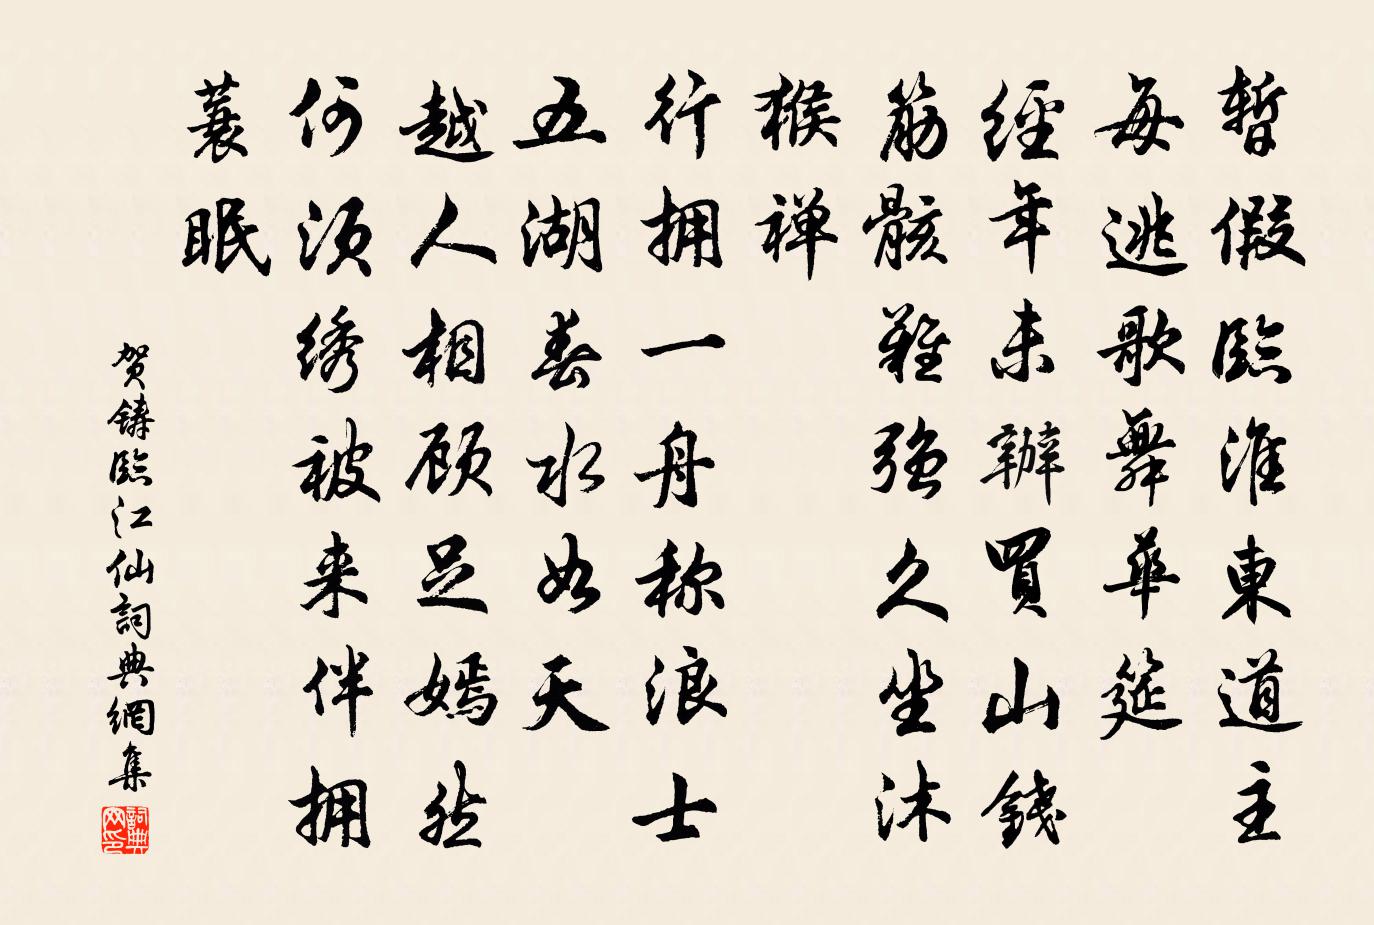 暂假臨淮東道主
每逃歌舞華筵
經年未辦買山錢
筋骸難强久坐沐
猴禅
行拥一舟称浪士
五湖春水如天
越人相顾足嫣然
何须绣被来伴拥
蓑眠
贺鑄臨江仙詞典網集
詞典
网印